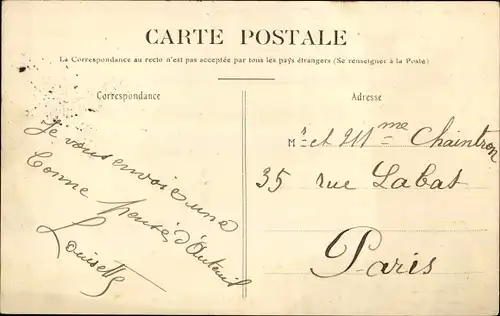 CARTE POSTALE
La Correspondance au recto n'est pas acceptée par tous les pays étrangers (Se renseigner à la Poste)
Correspondance
Je vous envoie une
bonne pensée d'Auteuil
Louisette
Adresse
Mr et Mme Chaintron
35 rue Labat
Paris